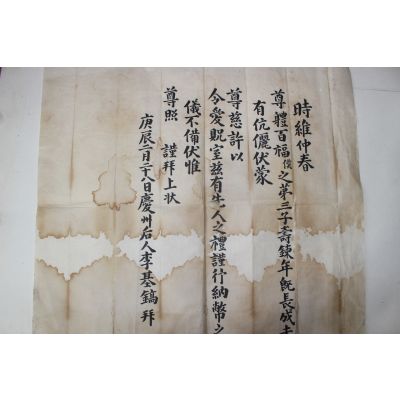 時維仲春
尊體百福僕之第三子壽鍊年旣長成未
有伉儷伏蒙
尊慈許以
令愛貺室玆有先人之禮謹行納幣之
儀不備伏惟
尊照 謹拜上狀
庚辰二月二十八日慶州后人李基鎬拜